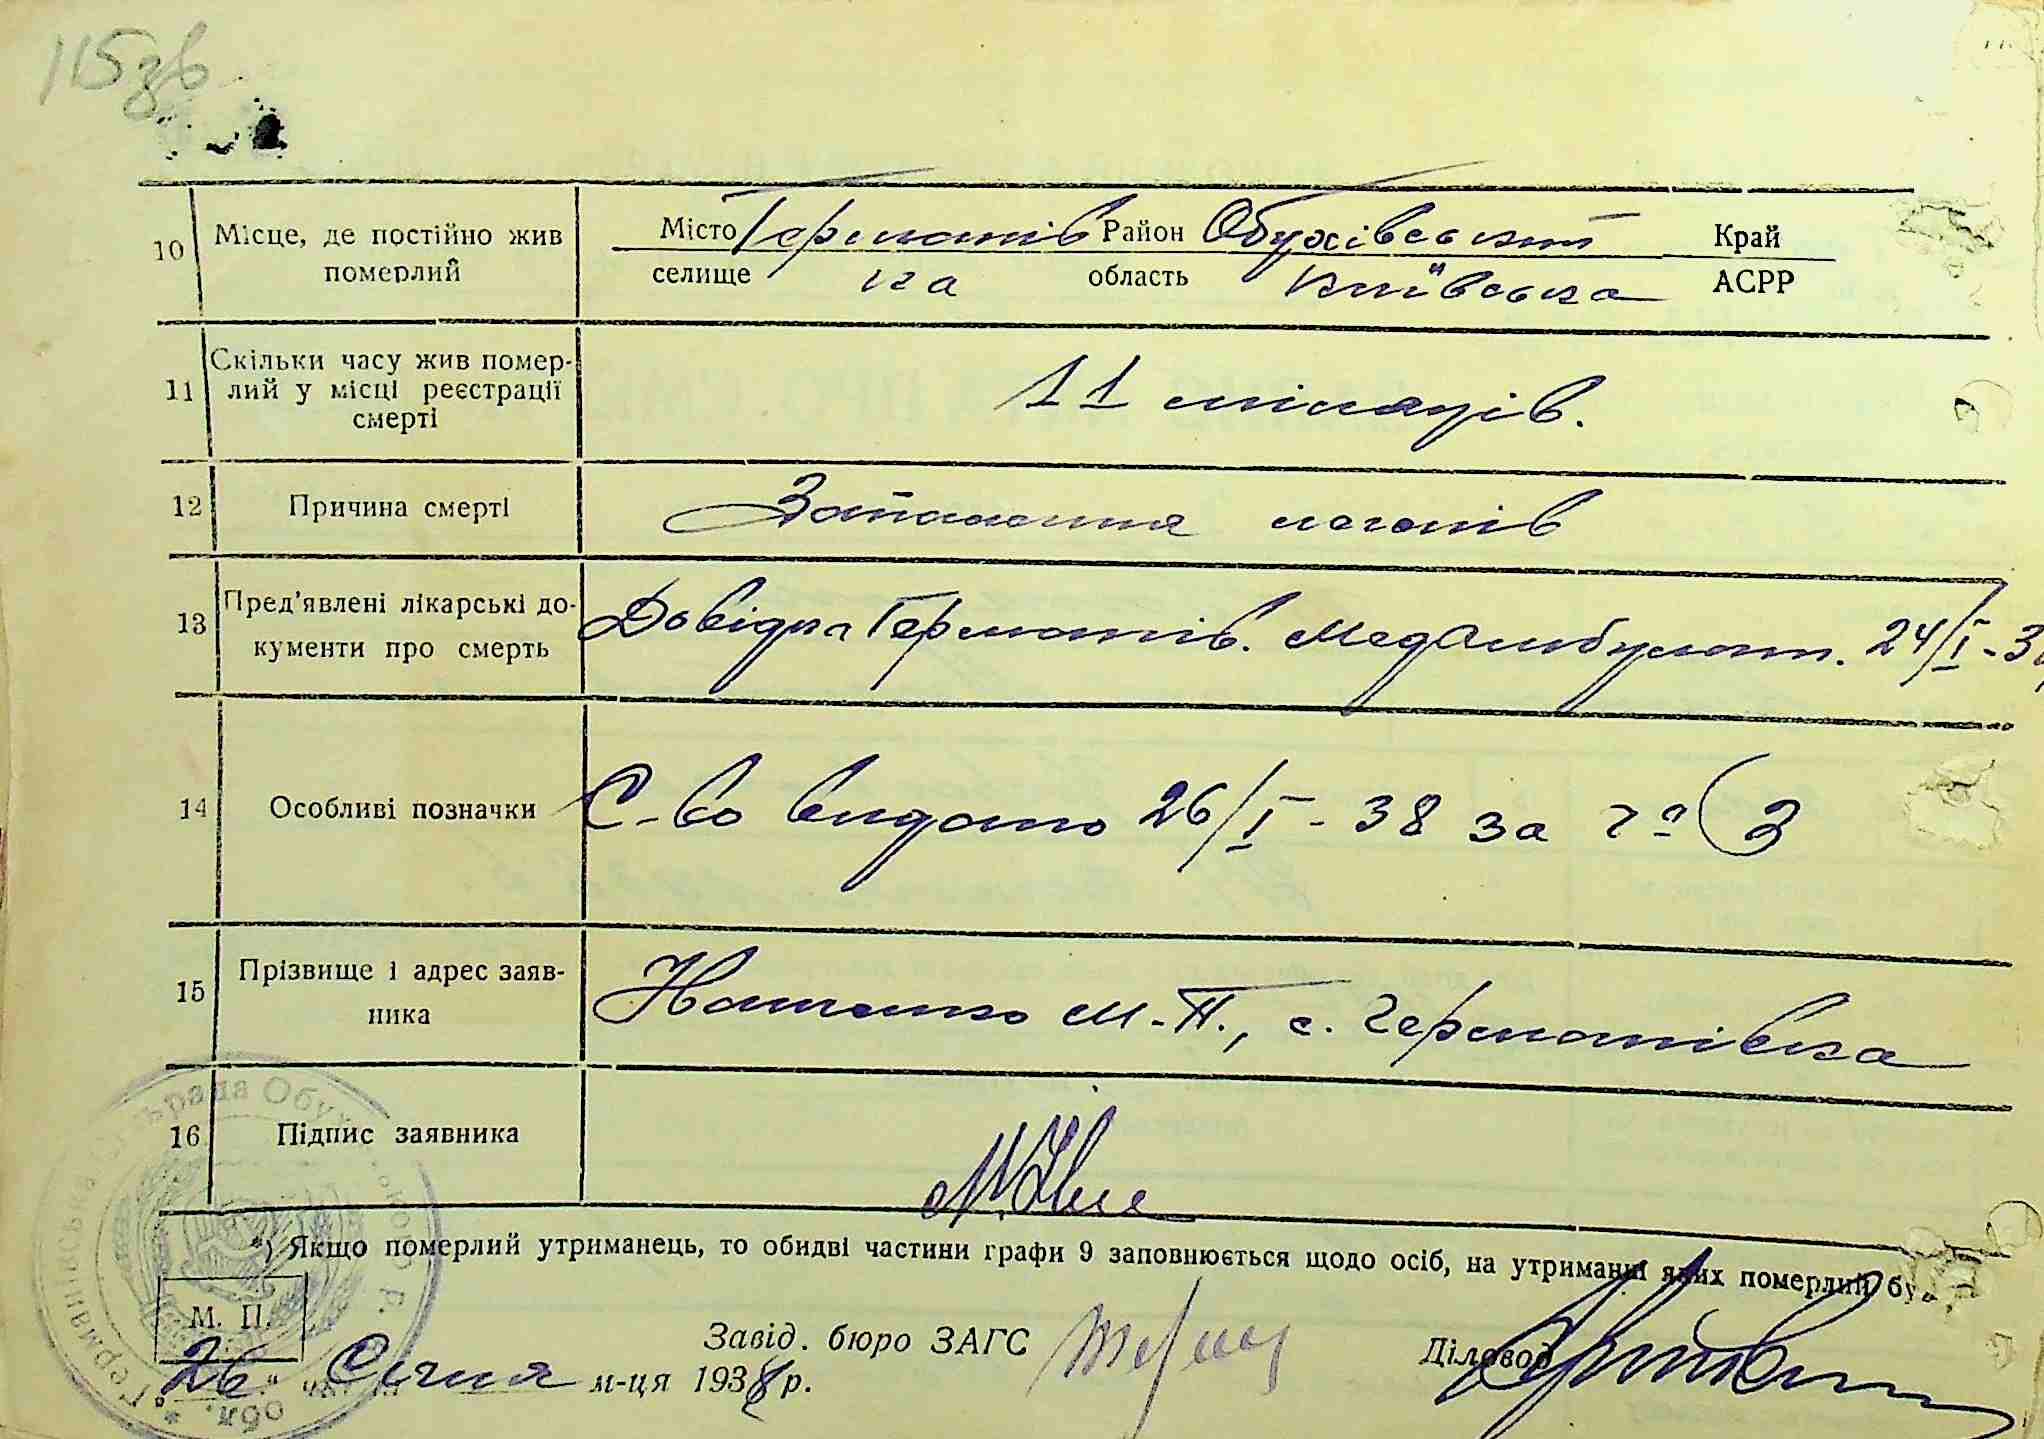 115 зв
10 Місце, де постійно жив померлий
Місто Германів Район Обухівський Край
селище ка область Київська АСРР
11 Скільки часу жив помер-
лий у місці реєстрації
смерті
11 місяців.
12 Причина смерті Запалення легенів
13 Пред'явлені лікарські до-
кументи про смерть
Довідка Германів. МедАмбулат. 24/I-38
14 Особливі позначки С-во видано 26/I-38 за № 3
15 Прізвище і адрес заяв-
ника
М.П., с. Германівка
16 Підпис заявника
*) Якщо померлий утриманець, то обидві частини графи 9 заповнюється щодо осіб, на утриманні яких померлий був.
М. П.
Завід. бюро ЗАГС Діловод
26 " Січня м-ця 1938 р.
Германівська Сільрада Обухівського р. обл.